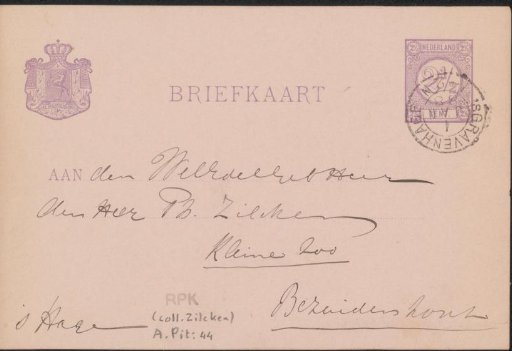 NEDERLAND
BRIEFKAART
'SGRAVENHAGE
AAN den WelEdelgeb Heer
den Heer Ph. Zilcken
Kleine Loo
RPK
(coll. Zilcken)
A. Pit: 44
Bezuidenhout
's Hage